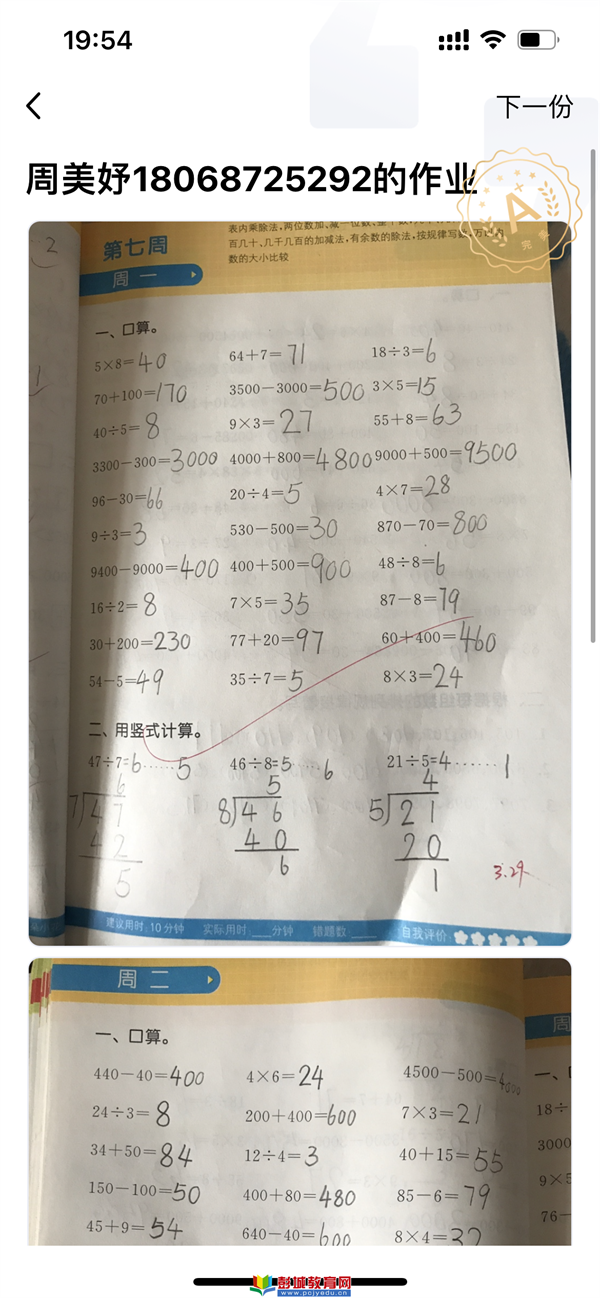 19:54
下一份
周美妤18068725292的作业
A
第七周
百几十、几千几百的加减法，有余数的除法，按规律写数，万以内
数的大小比较
周一
一、口算。
5×8=40 64+7=71 18÷3=6
70+100=170 3500-3000=500 3×5=15
40÷5=8 9×3=27 55+8=63
3300-300=3000 4000+800=4800 9000+500=9500
96-30=66 20÷4=5 4×7=28
9÷3=3 530-500=30 870-70=800
9400-9000=400 400+500=900 48÷8=6
16÷2=8 7×5=35 87-8=79
30+200=230 77+20=97 60+400=460
54-5=49 35÷7=5 8×3=24
二、用竖式计算。
47÷7=6……5 46÷8=5……6 21÷5=4……1
6 5 4
7)47 8)46 5)21
42 40 20
5 6 1
3.29
建议用时:10分钟 实际用时:___分钟 错题数:___ 自我评价
周二
一、口算。
440-40=400 4×6=24 4500-500=4000
24÷3=8 200+400=600 7×3=21
34+50=84 12÷4=3 40+15=55
150-100=50 400+80=480 85-6=79
45+9=54 640-40=600 8×4=32
周
一、
18÷
3000
9×5
76-
彭城教育网
www.pcjyedu.cn